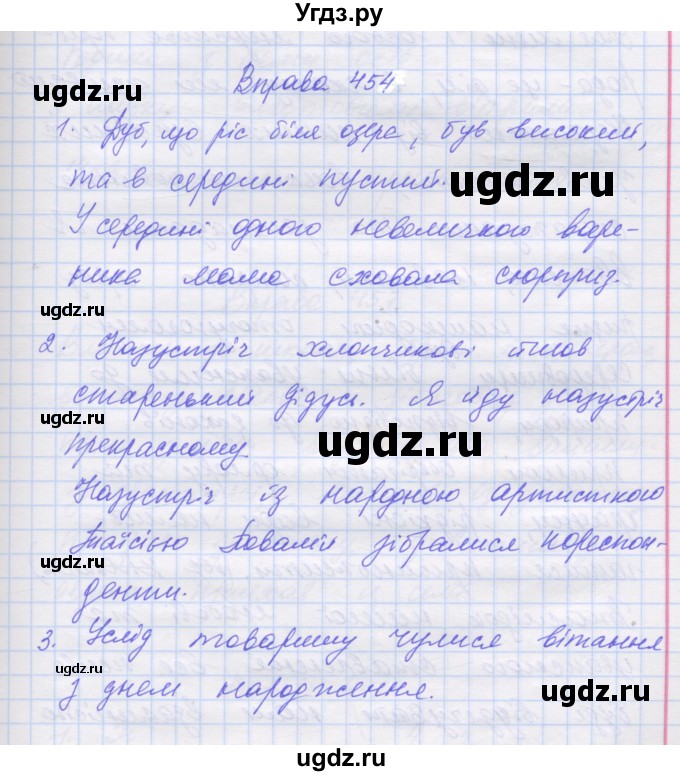 Угдз.ру
Вправа 454
ugdz.ru
1. Дуб, що ріс біля озера, був високий,
та в середині пустий.
ugdz.ru
У середині одного невеличкого варе-
ника мама сховала сюрприз.
ugdz.ru
ugdz.ru
2. Назустріч хлопчикові йшов
старенький дідусь. Я йду назустріч
прекрасному.
ugdz.ru
Назустріч із народною артисткою
Таїсією Повалій зібралися кореспон-
ugdz.ru
денти.
3. Услід товаришу чулися вітання
ugdz.ru
з днем народження.
ugdz.ru
ugdz.ru